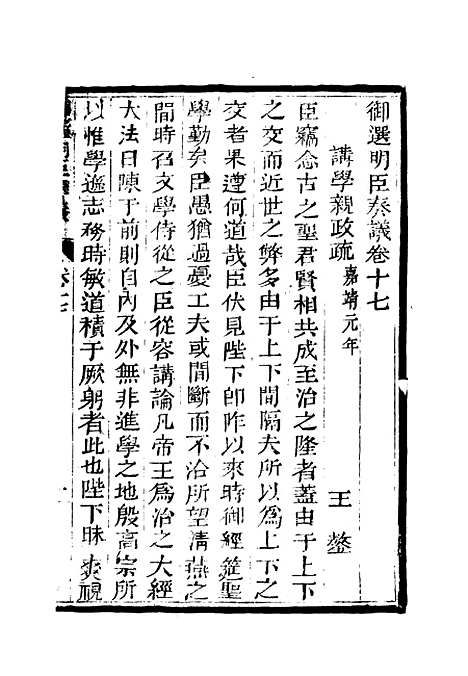 御選明臣奏議卷十七
講學親政疏嘉靖元年
王鏊
臣竊念古之聖君賢相共成至治之隆者蓋由于上下
之交而近世之弊多由于上下間隔夫所以為上下之
交者果遵何道哉臣伏見陛下卽昨以來時御經筵聖
學勤矣臣愚猶過憂工夫或間斷而不洽所望清燕之
間時召文學侍從之臣從容講論凡帝王為治之大經
大法日陳于前則自內及外無非進學之地殷高宗所
以惟學遜志務時敏道積于厥躬者此也陛下昧爽視